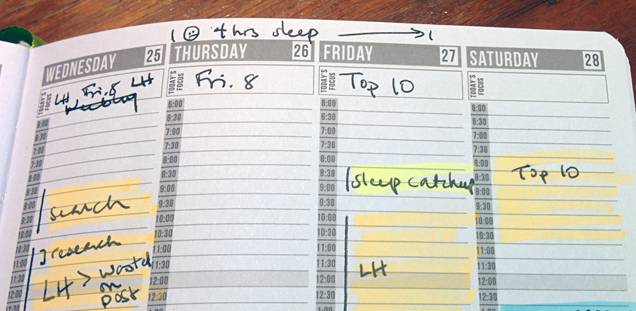 4hrs sleep
WEDNESDAY 25
TODAY'S FOCUS
LH Fri. 8 LH
6:30
7:00
7:30
8:00
8:30
9:00
9:30
search
10:00
10:30
research
11:00
11:30
LH > 
12:00
on
post
THURSDAY 26
TODAY'S FOCUS
Fri. 8
6:00
6:30
7:00
7:30
8:00
8:30
9:00
9:30
10:00
10:30
11:00
11:30
12:00
12:30
FRIDAY 27
TODAY'S FOCUS
Top 10
6:00
6:30
7:00
7:30
8:00
8:30
sleep catchup
9:00
9:30
10:00
10:30
11:00
11:30
LH
12:00
12:30
SATURDAY 28
TODAY'S FOCUS
6:00
6:30
7:00
7:30
8:00
8:30
Top 10
9:00
9:30
10:00
10:30
11:00
11:30
12:00